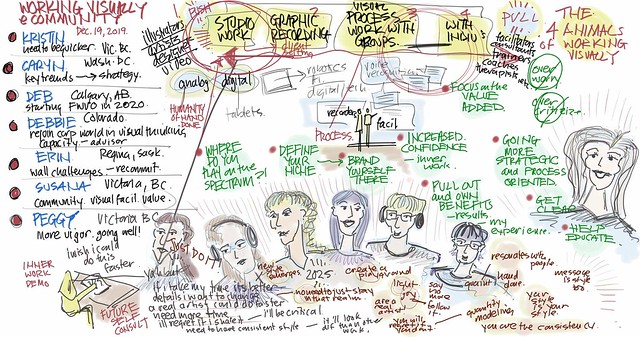 WORKING VISUALLY
e COMMUNITY
DEC. 19, 2019.
KRISTIN
need to be quicker. Vic. Bc.
CARYN Wash. DC.
key trends → strategy.
DEB Calgary, AB.
starting FWVO in 2020.
DEBBIE Colorado.
rejoin corp world in visual thinking
capacity - advisor
ERIN Regina, Sask.
wall challenges - recommit.
SUSANA Victoria, BC
community. visual facil. value.
PEGGY Victoria BC
More vigor. going well!
I wish I could
do this
faster
INNER
WORK
DEMO
FUTURE
SELF
CONSULT
PUSH
illustrators
artists
designer
video
STUDIO
WORK
2
GRAPHIC
RECORDING
client
setting
VISUAL
PROCESS
WORK WITH
GROUPS.
3
4
WITH
INDIV
PULL...
facilitators
consultants
trainers
coaches
therapists
THE
4 ANIMALS
OF WORKING
VISUALLY
over
worry
over
criticize
analog
digital
HUMANITY
OF HAND
DONE
tablets.
robotics
digital tech
voice
recognition
recorder
facil
PROCESS.
FOCUS ON THE
VALUE
ADDED.
WHERE
DO YOU
PLAY ON THE
SPECTRUM
DEFINE
YOUR
NICHE
BRAND
YOURSELF
THERE
INCREASED
CONFIDENCE
- inner
work.
PULL OUT
and OWN
BENEFITS
- results
my
experience.
GOING
MORE
STRATEGIC
and PROCESS
ORIENTED.
GET
CLEAR
HELP
EDUCATE
JUST DO IT
if I take my time its better
details I want to change
a real artist could do faster
need more time
I'll be critical.
ill regret if i share it
need to have consistent style
it'll look
dif than other
work.
new
style
emerges
2025
no need to just stay
in that realm
create a
playground
light
joy
are a
real
artist
you will
regret if
you don't
say
no
more
follow
it.
quaint
hand
done
quantity
modeling
resonates with
people.
message is
style too
your
style
is your
style.
you are the consistency.